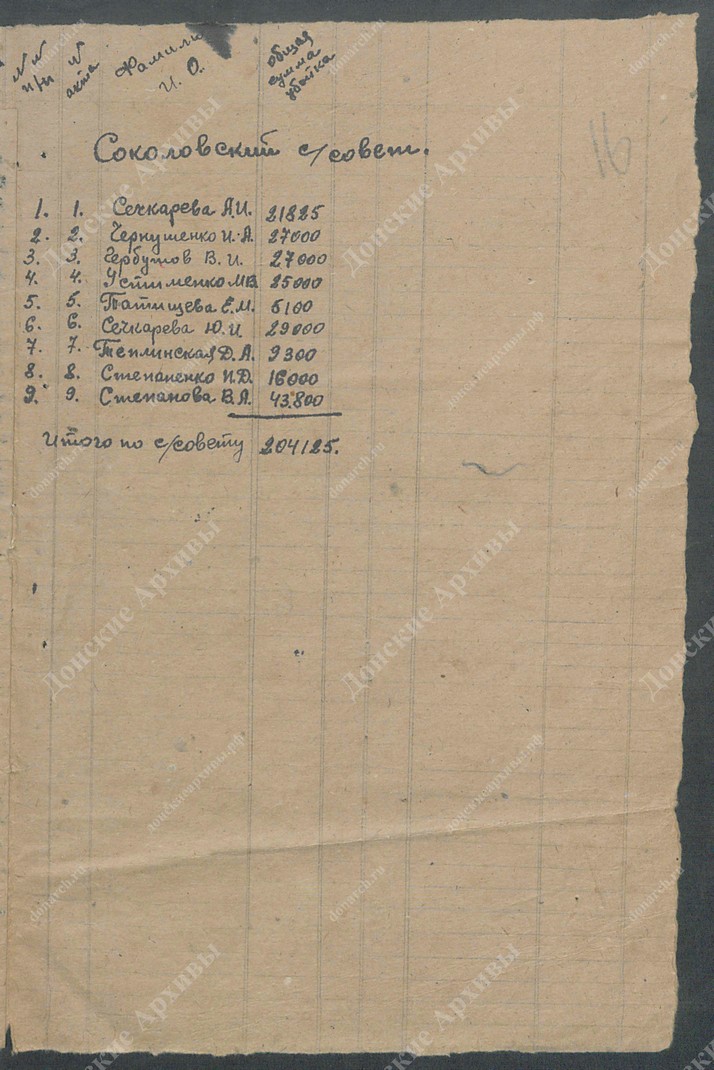 №№ п/п
№ акта
Фамилия И. О.
общая сумма убытка
16
Соколовский с/совет.
1. 1. Сечкарева А.И. 21825
2. 2. Чернушенко И.А. 27000
3. 3. Гербутов В.И. 27000
4. 4. Устименко М.В. 25000
5. 5. Татищева Е.М. 5100
6. 6. Сечкарева Ю.И. 29000
7. 7. Теплинская Д.А. 9300
8. 8. Степаненко И.Д. 16000
9. 9. Степанова В.А. 43.800
Итого по с/совету 204125.
Донские Архивы
donarch.ru
донскиеархивы.рф